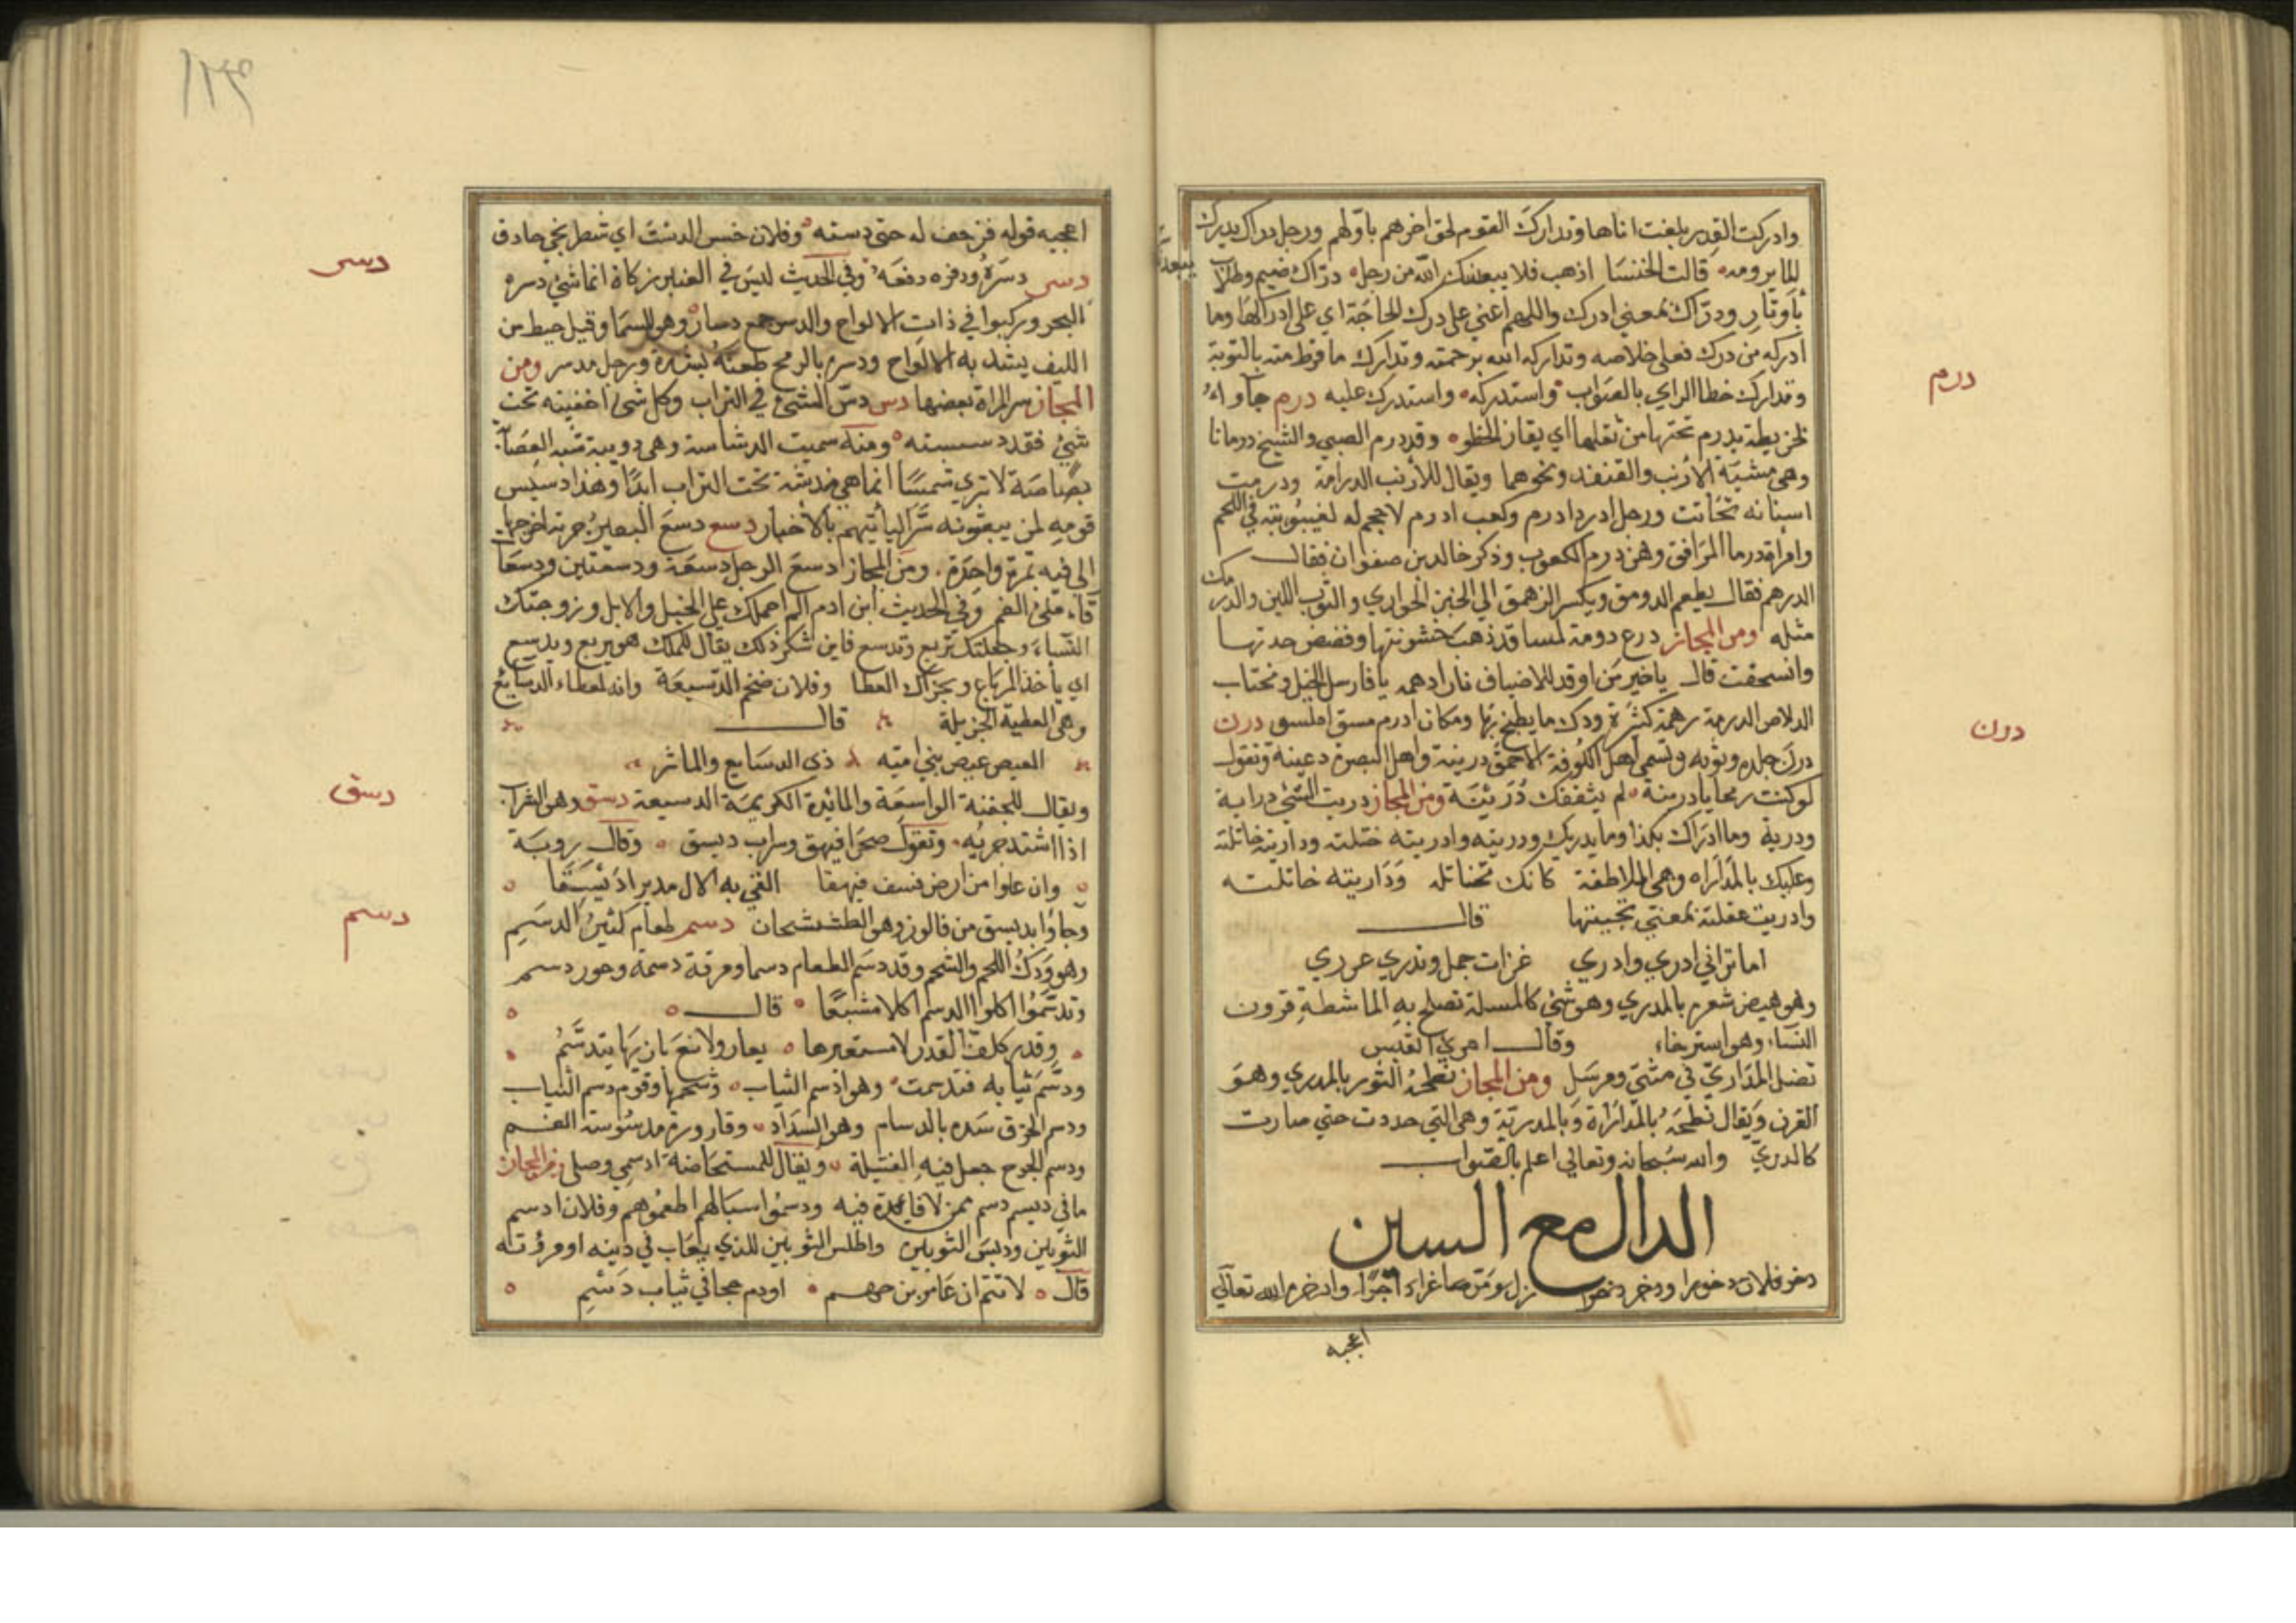 وادركت القدر بلغت اناها وتدارك القوم لحق اخرهم باولهم ورجل دراك يدرك
لما يرومه قالت الخنسا اذهب فلا يبعدنك الله من رجل دراك ضيم وطلاب
باوتار ودراك بمعني ادرك واللهم اعني علي درك الحاجة اي علي ادراكها وما
ادركه من درك فعلي خلاصه وتداركه الله برحمته وتدارك ما فرط منه بالتوبة
وتدارك خطا الراي بالصواب واستدركه واستدرك عليه درم
درم
يدرم تحتها من ثقلها اي يقارب الخطو وقد درم الصبي والشيخ درمانا
وهي مشية الارنب والقنفد ونحوهما ويقال للارنب الدرامة ودرمت
اسنانه تحاتت ورجل ادرد ادرم وكعب ادرم لا حجم له لغيبوبته في اللحم
وامراة درما المرافق وهن درم الكعوب وذكر خالد بن صفوان فقال
الدرهم فقال يطعم الدرمق ويكسو النرمق الي الخبز الحواري والثوب اللين والدرمك
مثله ومن المجاز درع درمة لمسا قد ذهبت خشونتها وقضض حدتها
وانسحقت قال ياخير من اوقد للاضياف نارا دهمه يا فارس الخيل ومجتاب
الدلاص الدرمة ومكان ادرم مستو املس درن
درن
درن جلده وثوبه وتسمي اهل الكوفة الاحمق درينة واهل البصرة دغينة وتقول
لو كنت رمحا يا درينة لم يثقفك ومن المجاز دريت الشي دراية
ودرية وما ادراك بكذا وما يدريك ودريته وادريته ختلته وداريته خاتلته
وعليك بالمداراه وهي الملاطفة كانك تخاتله وداريته خاتلته
وادريت غفلته بمعني تحينتها قال
اما تراني ادري وادري غرات جمل وتدري غرري
وهو شعره بالمدري وهو شي كالمسلة تصلح به الماشطة قرون
النساء وهو استرخاء وقال امرئ القيس
تضل المداري في مثني ومرسل ومن المجاز نطحه الثور بالمدري وهو
القرن ويقال نطحه بالمدارة وبالمدرية وهي التي حددت حتي صارت
كالمدري والله سبحانه وتعالي اعلم بالصواب
الدال مع السين
الله تعالي
اعجبه
اعجبه قوله فزحف له حتي دسته وفلان حسن الدست اي شطرنجي حاذق
دسر
دسر دسره ودفره دفعه وفي الحديث ليس في العنبر زكاة انما شي دسره
البحر وركبوا في ذات الالواح والدسر جمع دسار وهو المسمار وقيل خيط من
الليف يشد به الالواح ودسره بالرمح طعنه بشدة ورجل مدسر ومن
المجاز دسر المراة بضعها دس دس الشي في التراب وكل شي اخفيته تحت
شي فقد دسسته ومنه سميت الدساسة وهي دويبة شبه العضا
بصاصة لا تري شمسا انما هي مندسة تحت التراب ابدا وهذا دسيس
قومه لمن يبعثونه سرا لياتيهم بالاخبار دسع دسع البعير جرته اخرجها
الي فيه بمرة واحدة ومن المجاز دسع الرجل دسعة ودسعتين ودسعا
قاء ملئ الفم وفي الحديث ابن ادم الم احملك علي الخيل والابل وزوجتك
النساء وجعلتك تربع وتدسع فاين شكر ذلك يقال للملك هو يربع ويدسع
اي ياخذ المرباع ويجزل العطا وفلان ضخم الدسيعة وانه لمعطاء الدسايع
وهي العطية الجزيلة قال
العيص عيص بني امية ذي الدسايع والماثر
ويقال للجفنة الواسعة والمائدة الكريمة الدسيعة دسق وهو السراب
دسق
اذا اشتد جريه وتقول صحرا فيهق وسراب ديسق وقال روبة
وان علوا من ارض نسف فيهقا القي به الال مديرا ديسقا
وجاوا بديسق من فالوذ وهو الطشتخان دسم طعام كثير الدسم
دسم
وهو ودك اللحم والشحم وقد دسم الطعام دسما ومرقة دسمة وحور دسم
وتدسموا اكلوا الدسم اكلا مشبعا قال
وقدر ككف القرد لا مستعيرها يعار ولا من يانها يتدسم
ودسم ثيابه فتدسمت وهو ادسم الثياب ووسخها وقوم دسم الثياب
ودسم الخرق سده بالدسام وهو السداد وقارورة مدسومة الفم
ودسم الجرح جعل فيه الفتيلة ويقال للمستحاضة ادسمي وصلي ومن المجاز
ما في ديسم دسم لمن لا فايدة فيه ودسموا اسبالهم اطعموهم وفلان ادسم
الثوبين ودنس الثوبين واطلس الثوبين للذي يعاب في دينه او مروته
قال لاهم ان عامر بن جهم اوذم حجا في ثياب دسم